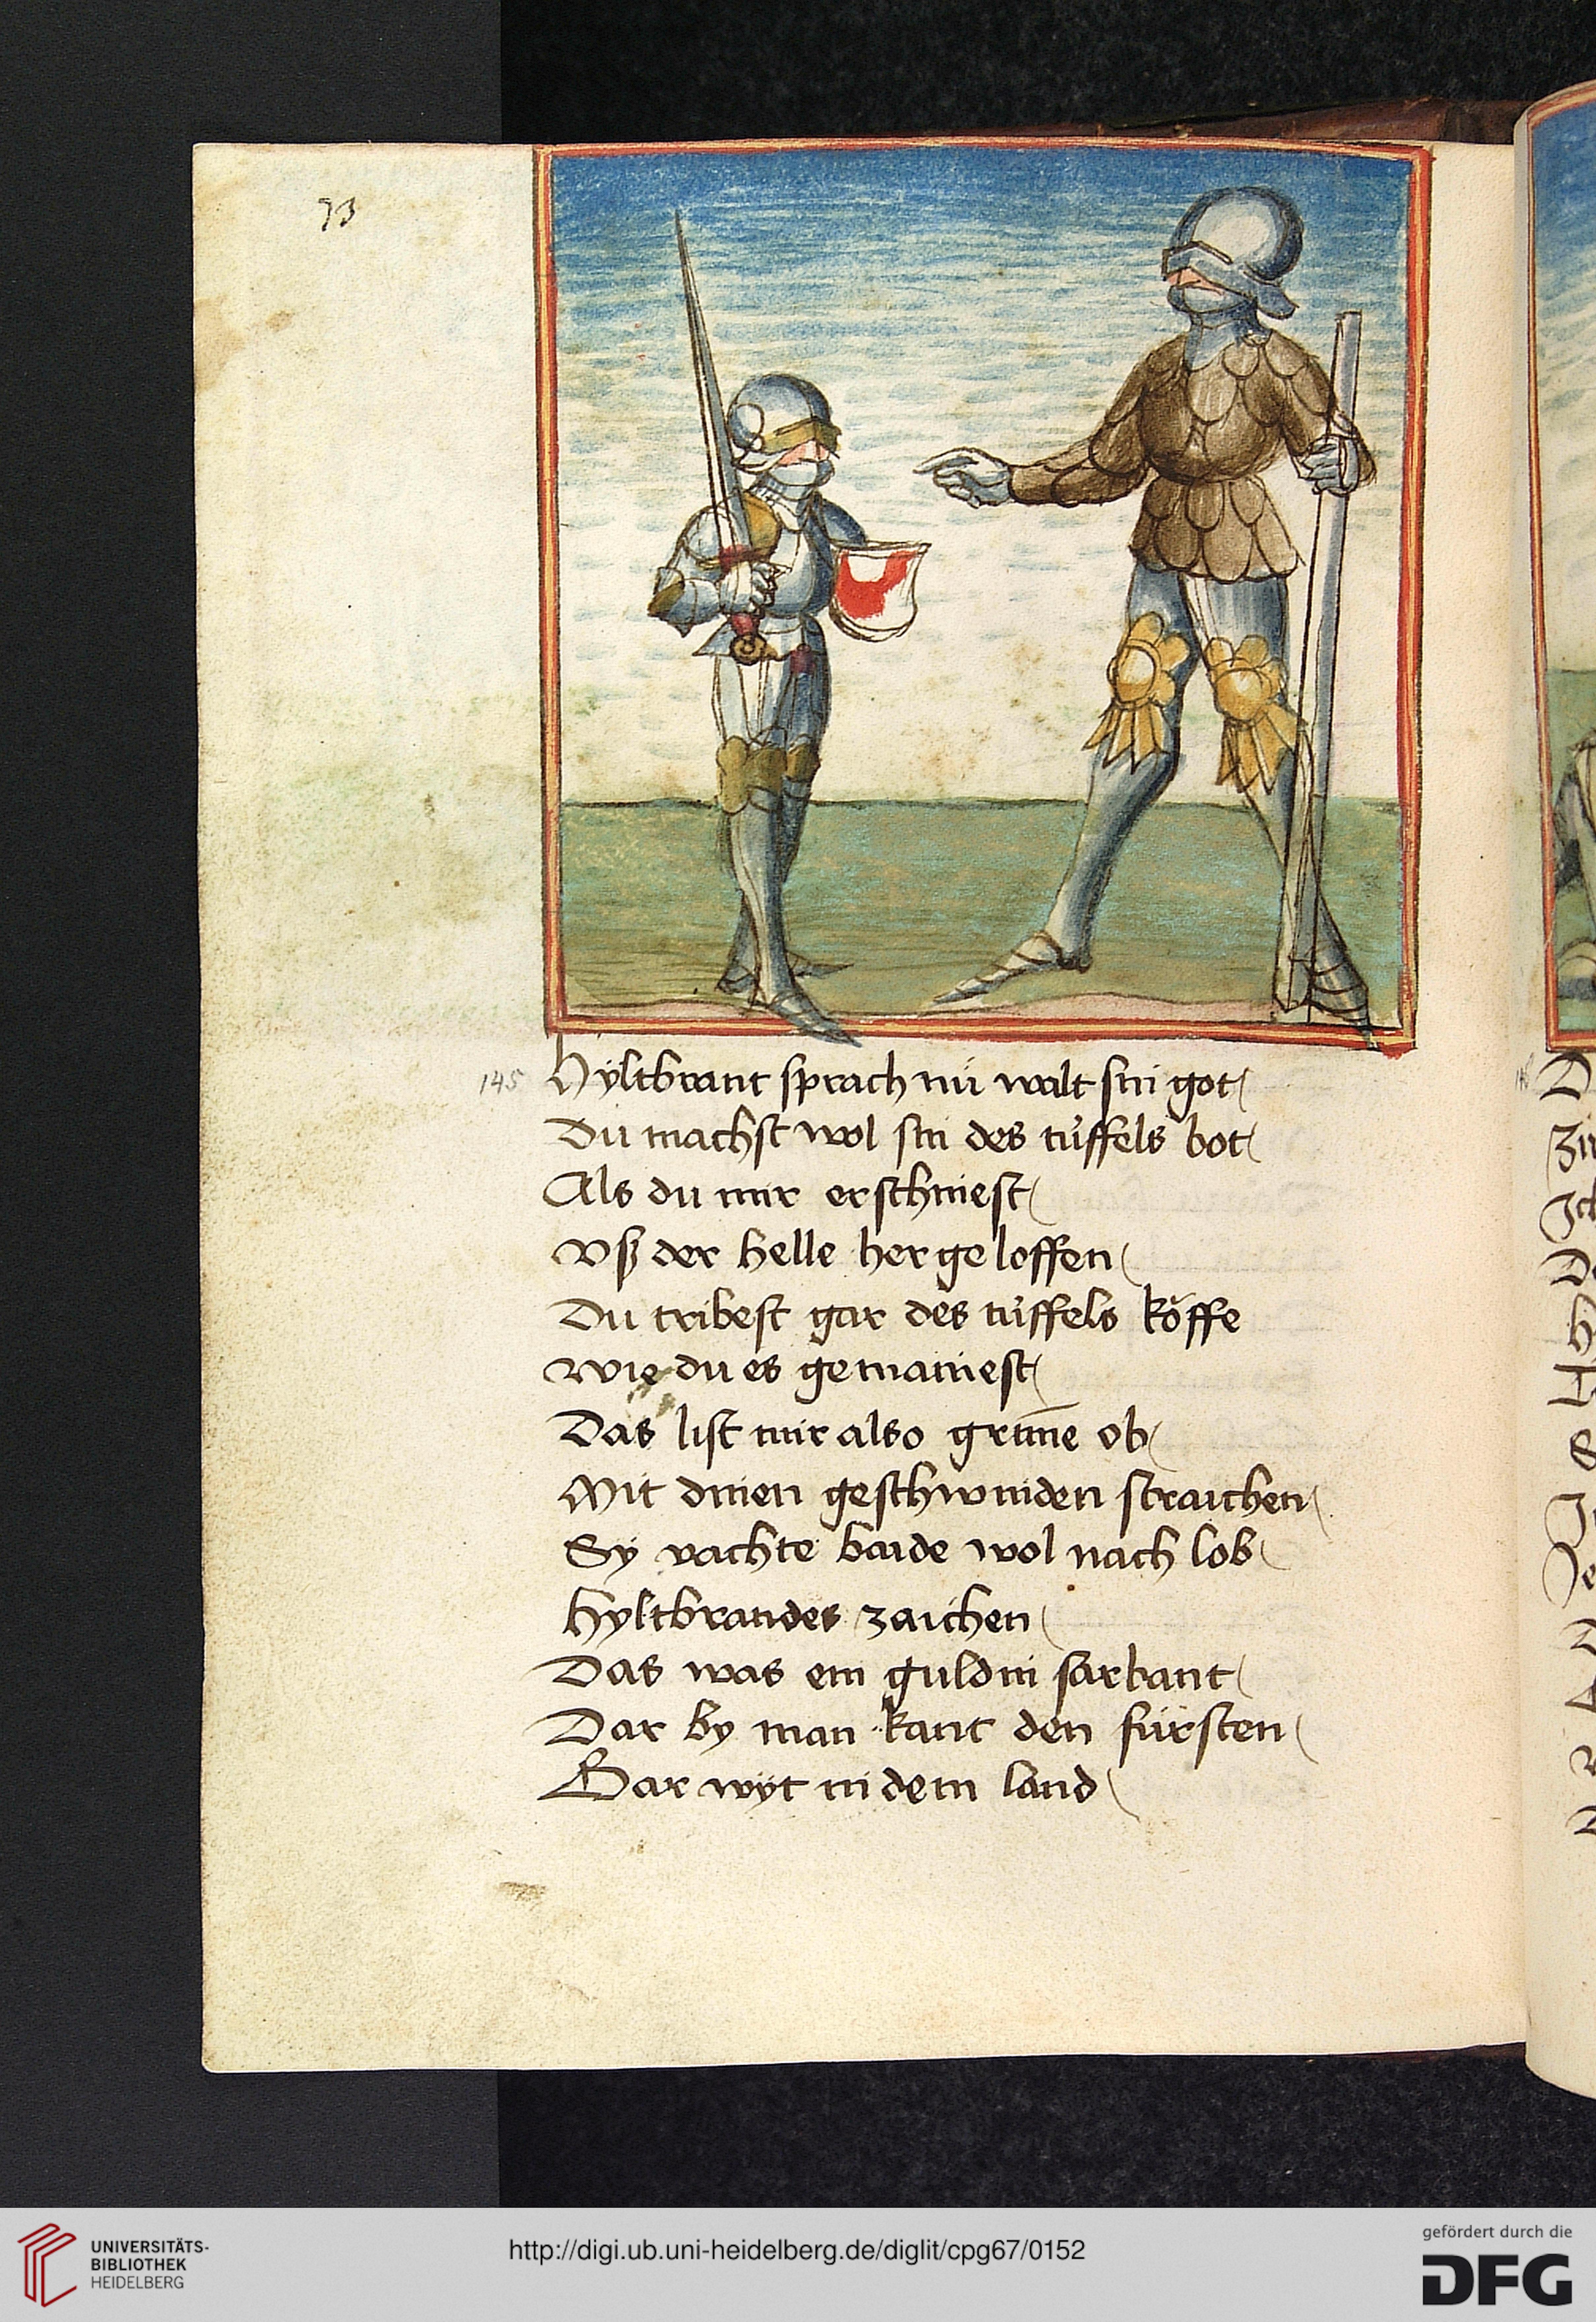 73
145
Hyltbrant sprach nü walt sin got
Du machst wol sin des tüffels bot
Als du mir erschinest
Vß der helle her geloffen
Du tribest gar des tüffels köffe
Wie du es gemainest
Das list mir also grim̅e ob
Mit dinen geschwinden straichen
Sy vachte baide wol nach lob
Hyltbrandes zaichen
Das was ein guldin sarbant
Dar by man kant den fürsten
Gar wyt in dem land
UNIVERSITÄTS-
BIBLIOTHEK
HEIDELBERG
http://digi.ub.uni-heidelberg.de/diglit/cpg67/0152
gefördert durch die
DFG